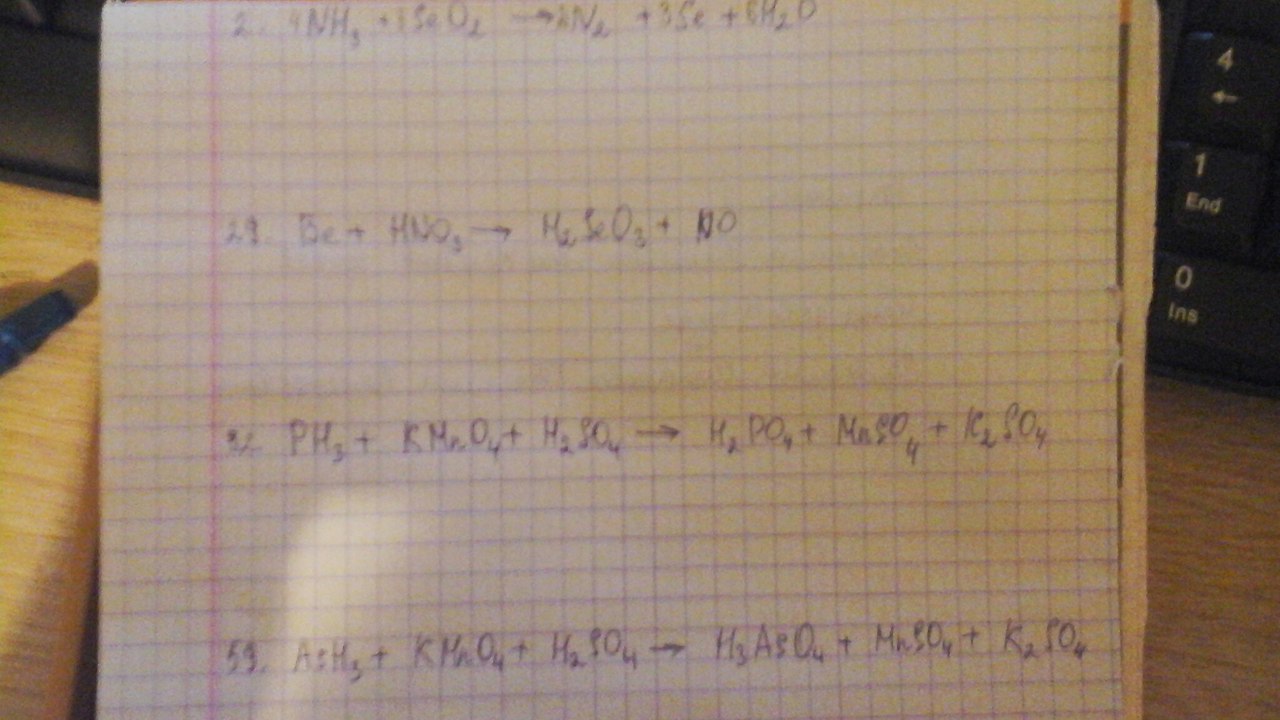 2. 4NH₃ + 3SeO₂ → 2N₂ + 3Se + 6H₂O
4
←
29. Se + HNO₃ → H₂SeO₃ + NO
1
End
0
Ins
PH₃ + KMnO₄ + H₂SO₄ → H₂PO₄ + MnSO₄ + K₂SO₄
59. AsH₃ + KMnO₄ + H₂SO₄ → H₃AsO₄ + MnSO₄ + K₂SO₄